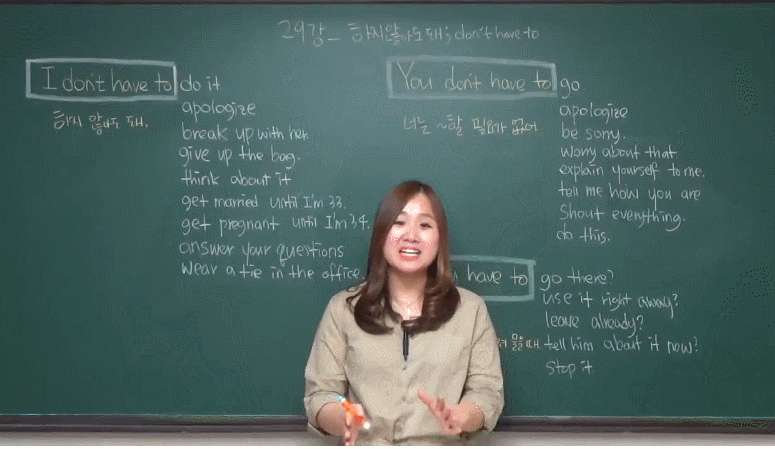 29강_ 하지않아도돼; don't have to
I don't have to do it
하지 않아도 돼.
apologize
break up with her.
give up the bag.
think about it
get married until I'm 33.
get pregnant until I'm 34.
answer your questions
wear a tie in the office.
You don't have to go
너는 ~할 필요가 없어
apologize
be sorry.
worry about that
explain yourself to me.
tell me how you are
Shout everything.
do this.
have to go there?
use it right away?
leave already?
tell him about it now?
stop it